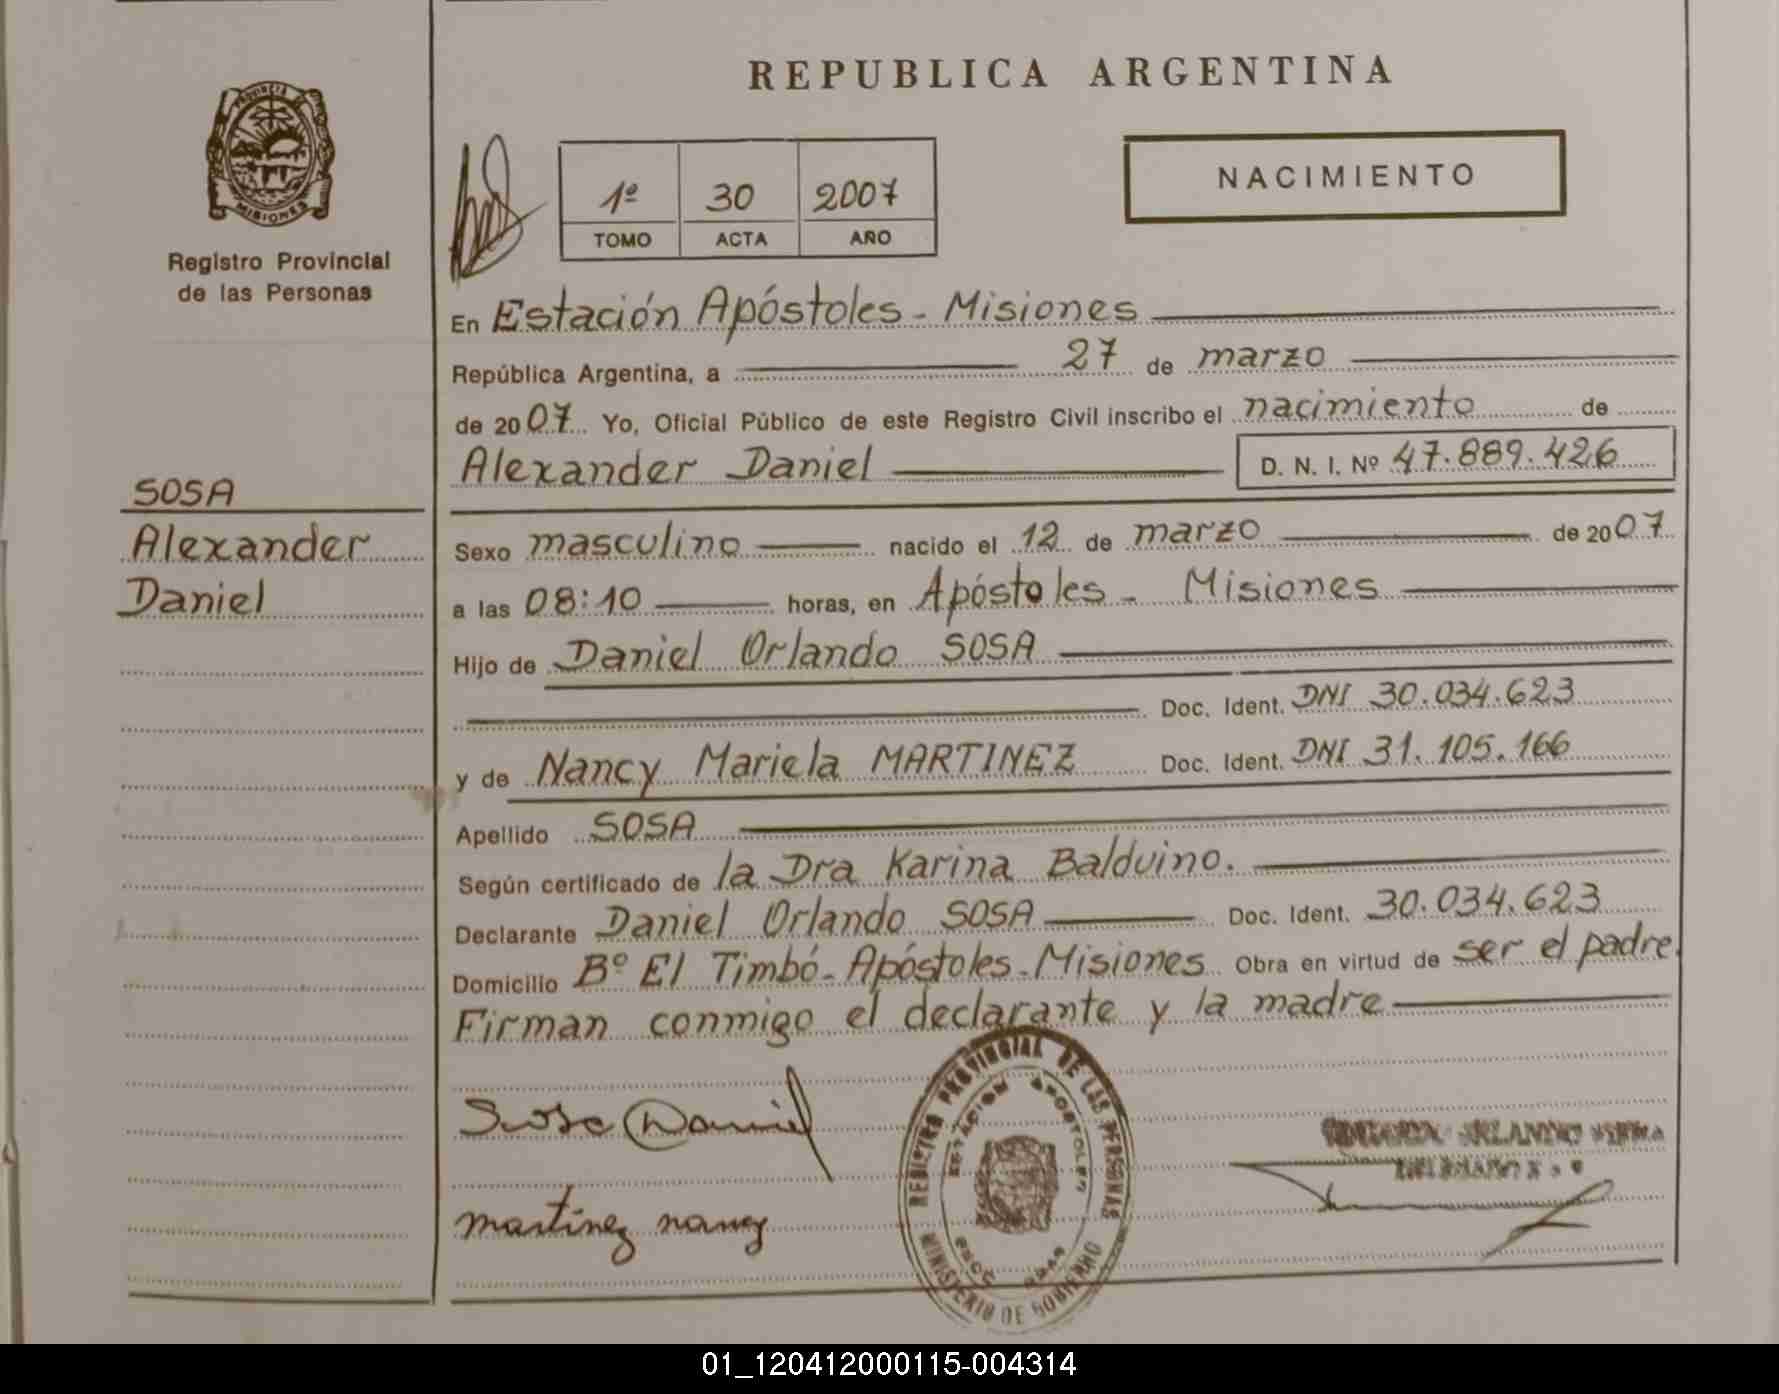 REPUBLICA ARGENTINA
PROVINCIA DE
MISIONES
Registro Provincial
de las Personas
1º 30 2007
TOMO ACTA AÑO
NACIMIENTO
En Estación Apóstoles - Misiones
República Argentina, a 27 de marzo
de 2007. Yo, Oficial Público de este Registro Civil inscribo el nacimiento de
Alexander Daniel D. N. I. Nº 47.889.426
SOSA
Alexander
Daniel
Sexo masculino nacido el 12 de marzo de 2007
a las 08:10 horas, en Apóstoles - Misiones
Hijo de Daniel Orlando SOSA
Doc. Ident. DNI 30.034.623
y de Nancy Mariela MARTINEZ Doc. Ident. DNI 31.105.166
Apellido SOSA
Según certificado de la Dra Karina Balduino.
Declarante Daniel Orlando SOSA Doc. Ident. 30.034.623
Domicilio Bº El Timbó - Apóstoles - Misiones Obra en virtud de ser el padre.
Firman conmigo el declarante y la madre
Sosa Daniel
martinez nancy
REGISTRO PROVINCIAL DE LAS PERSONAS
ESTACION APOSTOLES
MINISTERIO DE GOBIERNO
ORLANDO
DELEGADO
01_120412000115-004314